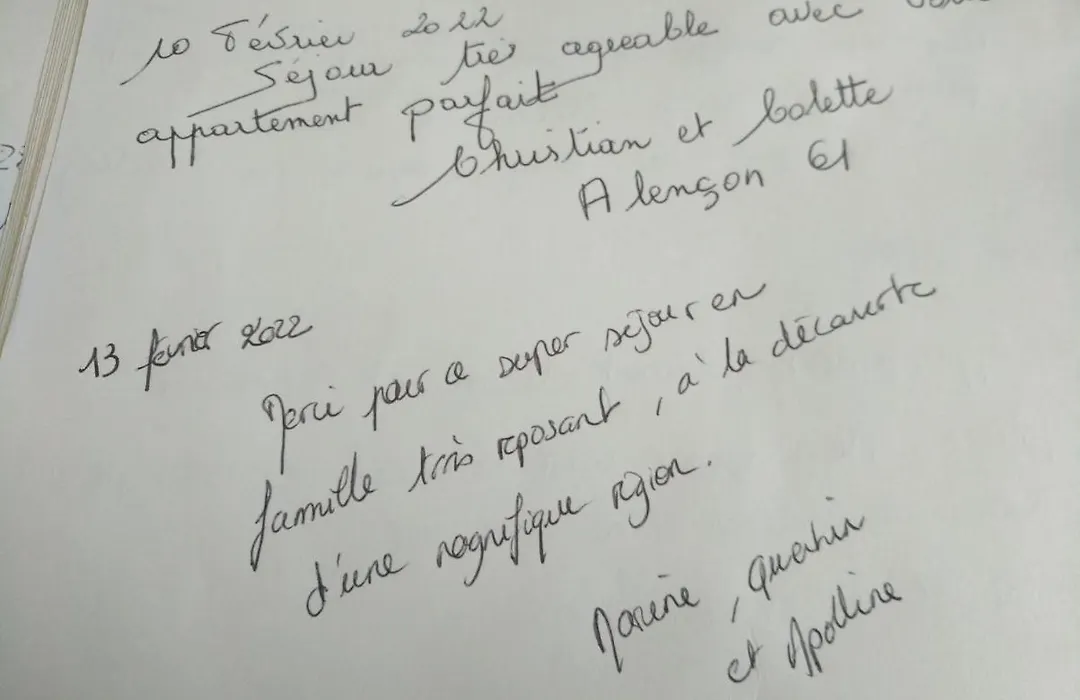 10 Février 2022
Séjour très agreable avec
appartement parfait
Christian et Colette
Alençon 61
13 février 2022
Merci pour ce super séjour en
famille très reposant, à la découverte
d'une magnifique région.
Marine, Quentin
et Apolline